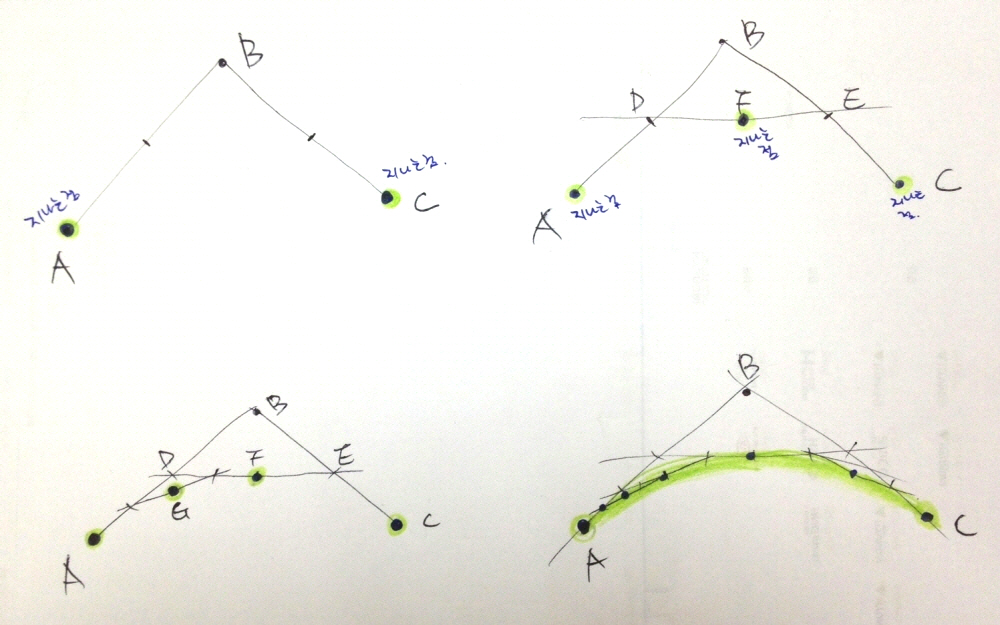 B
지나는점
지나는점.
C
A
B
D
F
E
지나는
점
A
지나는점
C
지나는
점.
B
D
F
E
G
A
C
B
A
C